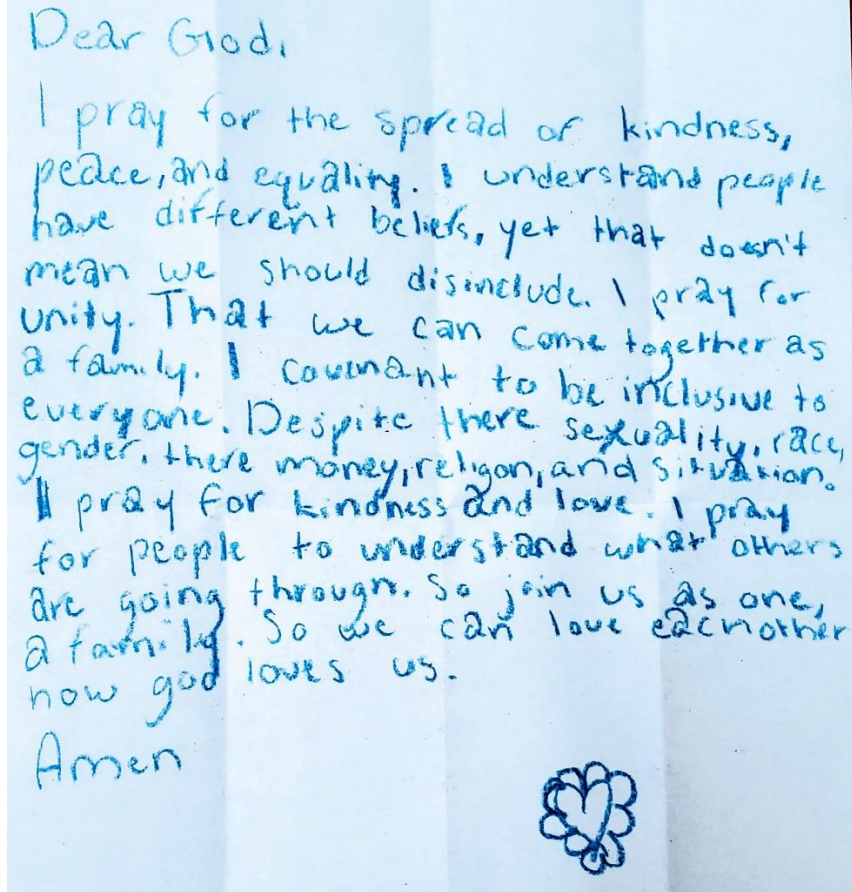 Dear God,
I pray for the spread of kindness,
peace, and equality. I understand people
have different beliefs, yet that doesn't
mean we should disinclude. I pray for
unity. That we can come together as
a family. I covenant to be inclusive to
everyone. Despite there sexuality, race,
gender, there money, religon, and situation.
I pray for kindness and love. I pray
for people to understand what others
are going through. So join us as one,
a family. So we can love eachother
how god loves us.
Amen